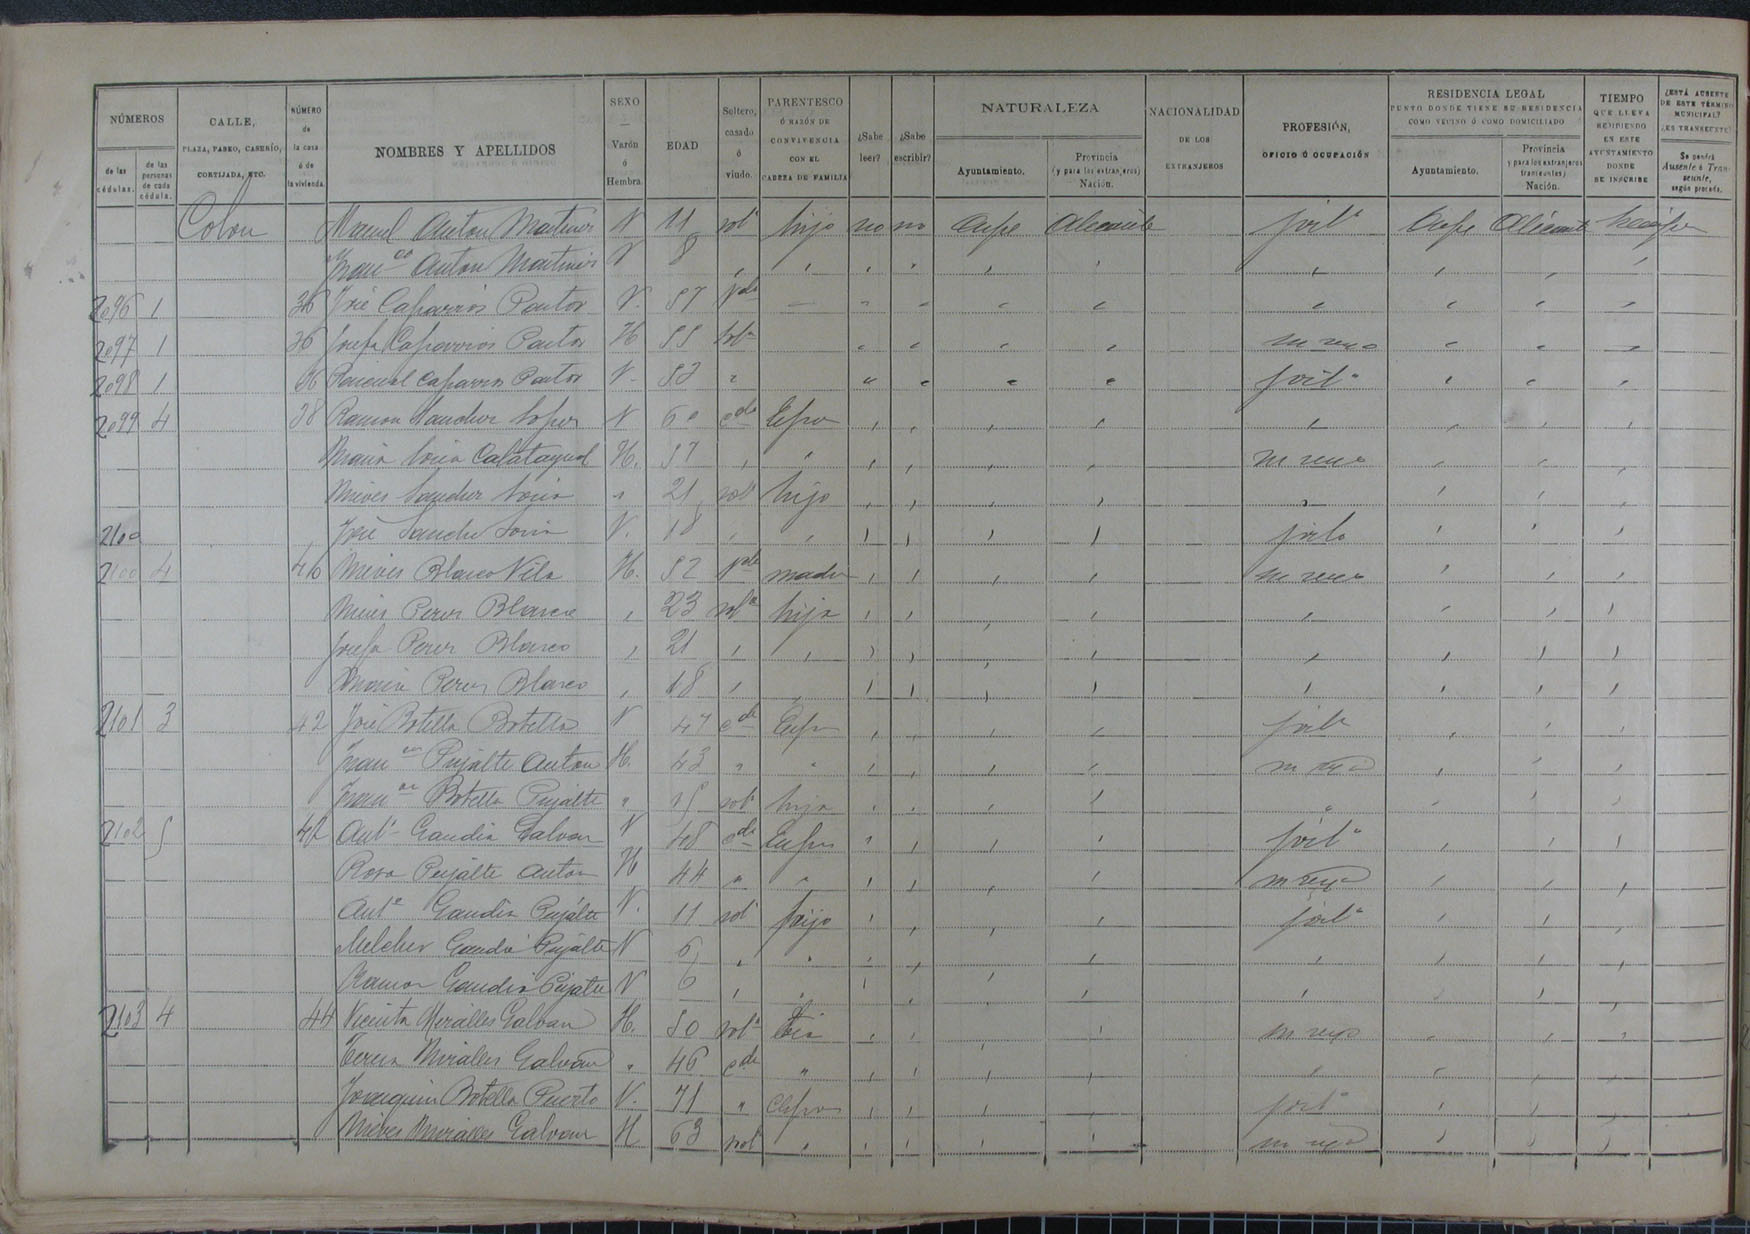 NÚMEROS | CALLE, PLAZA, PASEO, CASERÍO, CORTIJADA, ETC. | NÚMERO de la casa ó de la vivienda. | NOMBRES Y APELLIDOS | SEXO — Varón ó Hembra. | EDAD | Soltero, casado ó viudo. | PARENTESCO Ó RAZÓN DE CONVIVENCIA CON EL CABEZA DE FAMILIA | ¿Sabe leer? | ¿Sabe escribir? | NATURALEZA | NACIONALIDAD DE LOS EXTRANJEROS | PROFESIÓN, OFICIO Ó OCUPACIÓN | RESIDENCIA LEGAL PUNTO DONDE TIENE SU RESIDENCIA COMO VECINO Ó COMO DOMICILIADO | TIEMPO QUE LLEVA RESIDIENDO EN ESTE AYUNTAMIENTO DONDE SE INSCRIBE | ¿ESTÁ AUSENTE DE ESTE TÉRMINO MUNICIPAL? ¿ES TRANSEUNTE?
de las cédulas. | de las personas de cada cédula. | Ayuntamiento. | Provincia (y para los extranjeros) Nación. | Ayuntamiento. | Provincia (y para los extranjeros transeuntes) Nación. | Se pondrá Ausente ó Transeunte, según proceda.
Colon Manuel Anton Martines V 11 solº hijo no no Aspe Alicante jorlº Aspe Alicante
Franco Anton Martines V 8 " " " " " " " " " "
2096 1 36 José Caparrós Pastor V. 57 Vdo — " " " " " " " "
2097 1 36 Josefa Caparros Pastor H 55 solª " " " " " " "
2098 1 36 Pascual Caparros Pastor V. 52 " " " " " jorlº " " "
2099 4 38 Ramon Sanchez Lopez V 60 cdo Espo " " " " " " " "
Maria Soria Calatayud H. 57 " " " " " " " " "
Nieves Sanchez Soria " 21 solª hija " " " " " " " "
2100 José Sanchez Soria V. 18 " " " " " " jorlo " " "
2100 4 40 Nieves Blasco Vila H. 52 Vda madre " " " " " " "
Nieves Peres Blasco " 23 solª hija " " " " " " " "
Josefa Perez Blasco " 21 " " " " " " " " " "
Maria Peres Blasco " 18 " " " " " " " " " "
2101 3 42 José Botella Botella V 47 cdo Espo " " " " jorlo " " "
Franca Pujalte Anton H. 43 " " " " " " " " "
Franca Botella Pujalte " 15 solª hija " " " " " " " "
2102 5 42 Antº Gandia Galvan V 48 cdo Espos " " " " jorlº " " "
Rosa Pujalte Anton H 44 " " " " " " " " "
Antº Gandia Pujalte V. 11 solº hijo " " " " jorlº " " "
Melchor Gandia Pujalte V 6 " " " " " " " " " "
Ramon Gandia Pujalte V 6 " " " " " " " " " "
2103 4 44 Vicenta Miralles Galvan H. 50 solª tia " " " " " " "
Teresa Miralles Galvan " 46 cda " " " " " " " " "
Joaquin Botella Puerto V. 71 " Espos " " " " jorlº " " "
Nieves Miralles Galvan H 63 sol " " " " " " " "